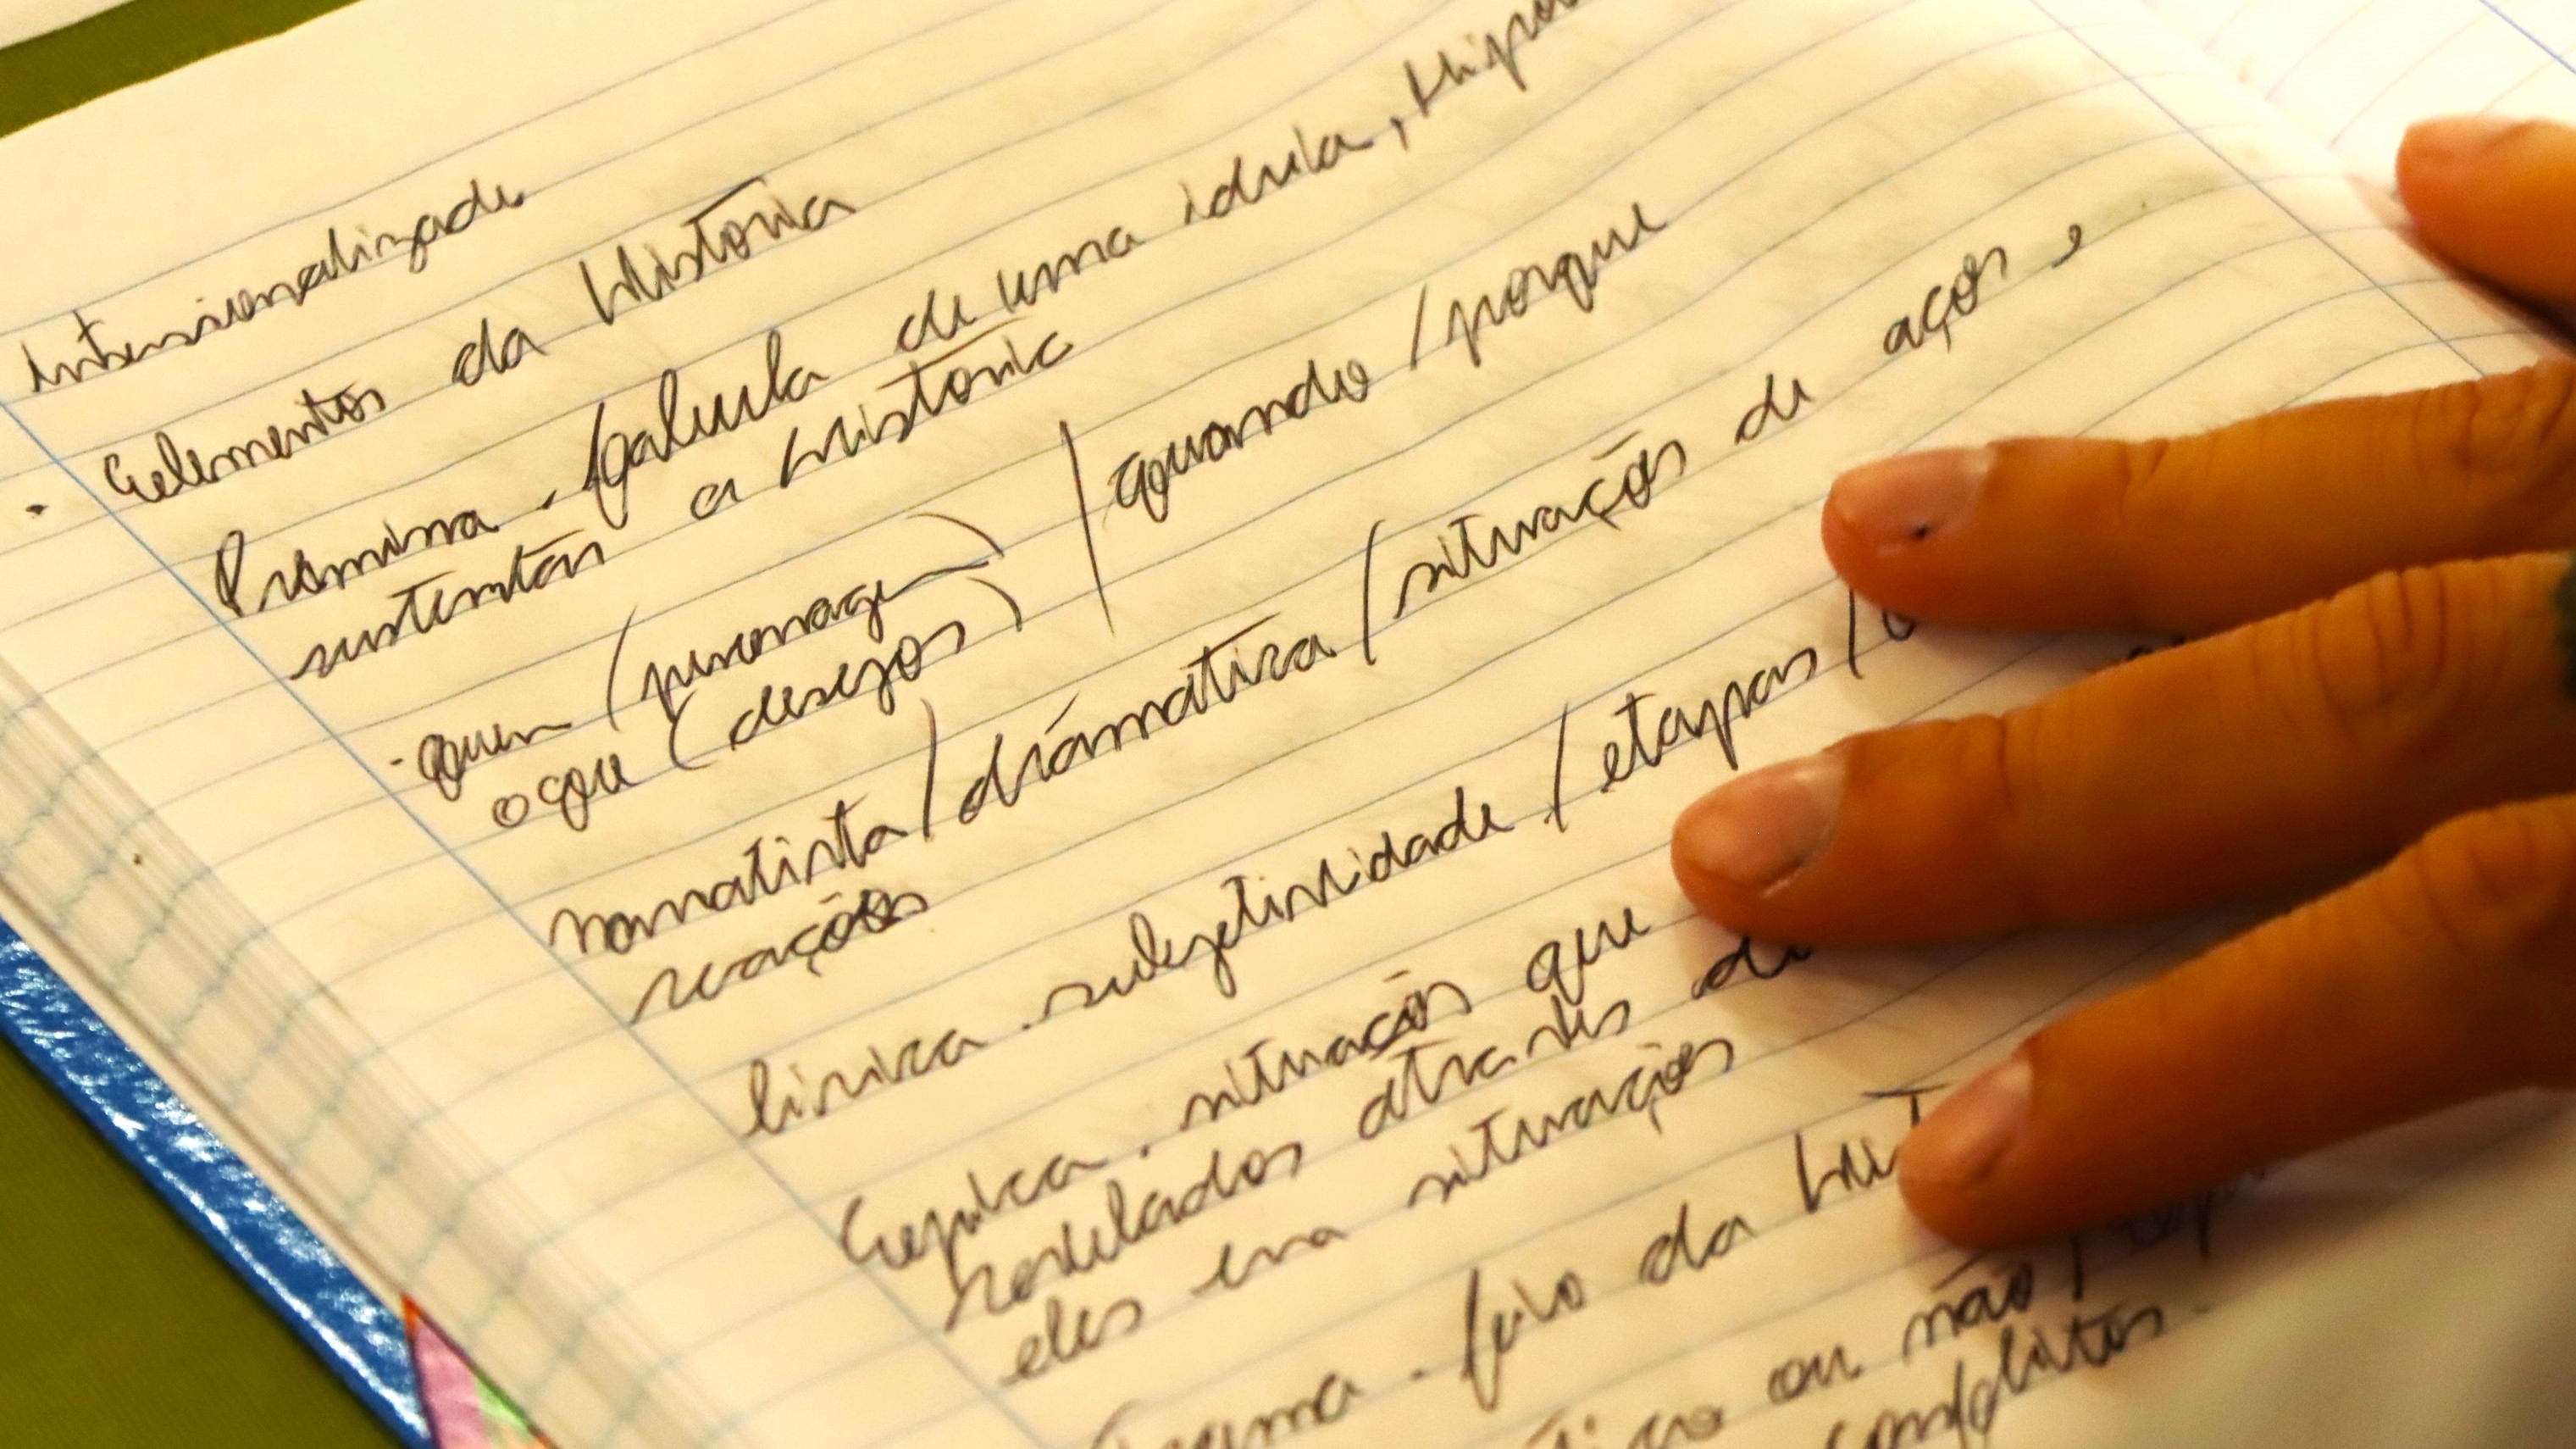 intensionalizade
. Elementos da história
Premissa . fabula de uma ideia, Hipo
sustentão a história
. quem (personagem) / quando / porque
o que (desejos)
narratista / drámatica / situaçãos de açoes e
reações
lirica . subjetividade / etapas /
Epica . situaçãos que
revelados através de
eles era situações
. feio da hist
ou não /
conflitos.